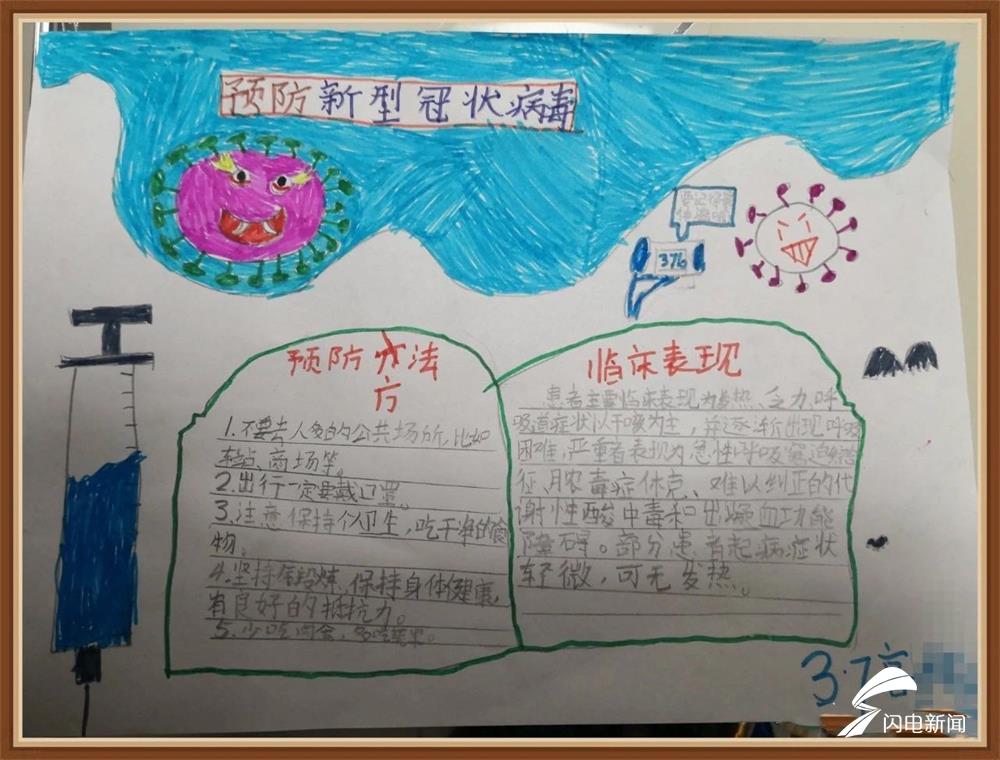 预防新型冠状病毒
376
预防方法
1.不要去人多的公共场所,比如
车站、商场等。
2.出行一定要戴口罩。
3.注意保持个人卫生,吃干净的食
物。
4.坚持锻炼,保持身体健康,
有良好的抵抗力。
5.少吃肉食,多吃蔬果。
临床表现
患者主要临床表现为发热、乏力,呼
吸道症状以干咳为主,并逐渐出现呼吸
困难,严重者表现为急性呼吸窘迫综合
征、脓毒症休克、难以纠正的代
谢性酸中毒和出凝血功能
障碍。部分患者起病症状
轻微,可无发热。
3.7
闪电新闻